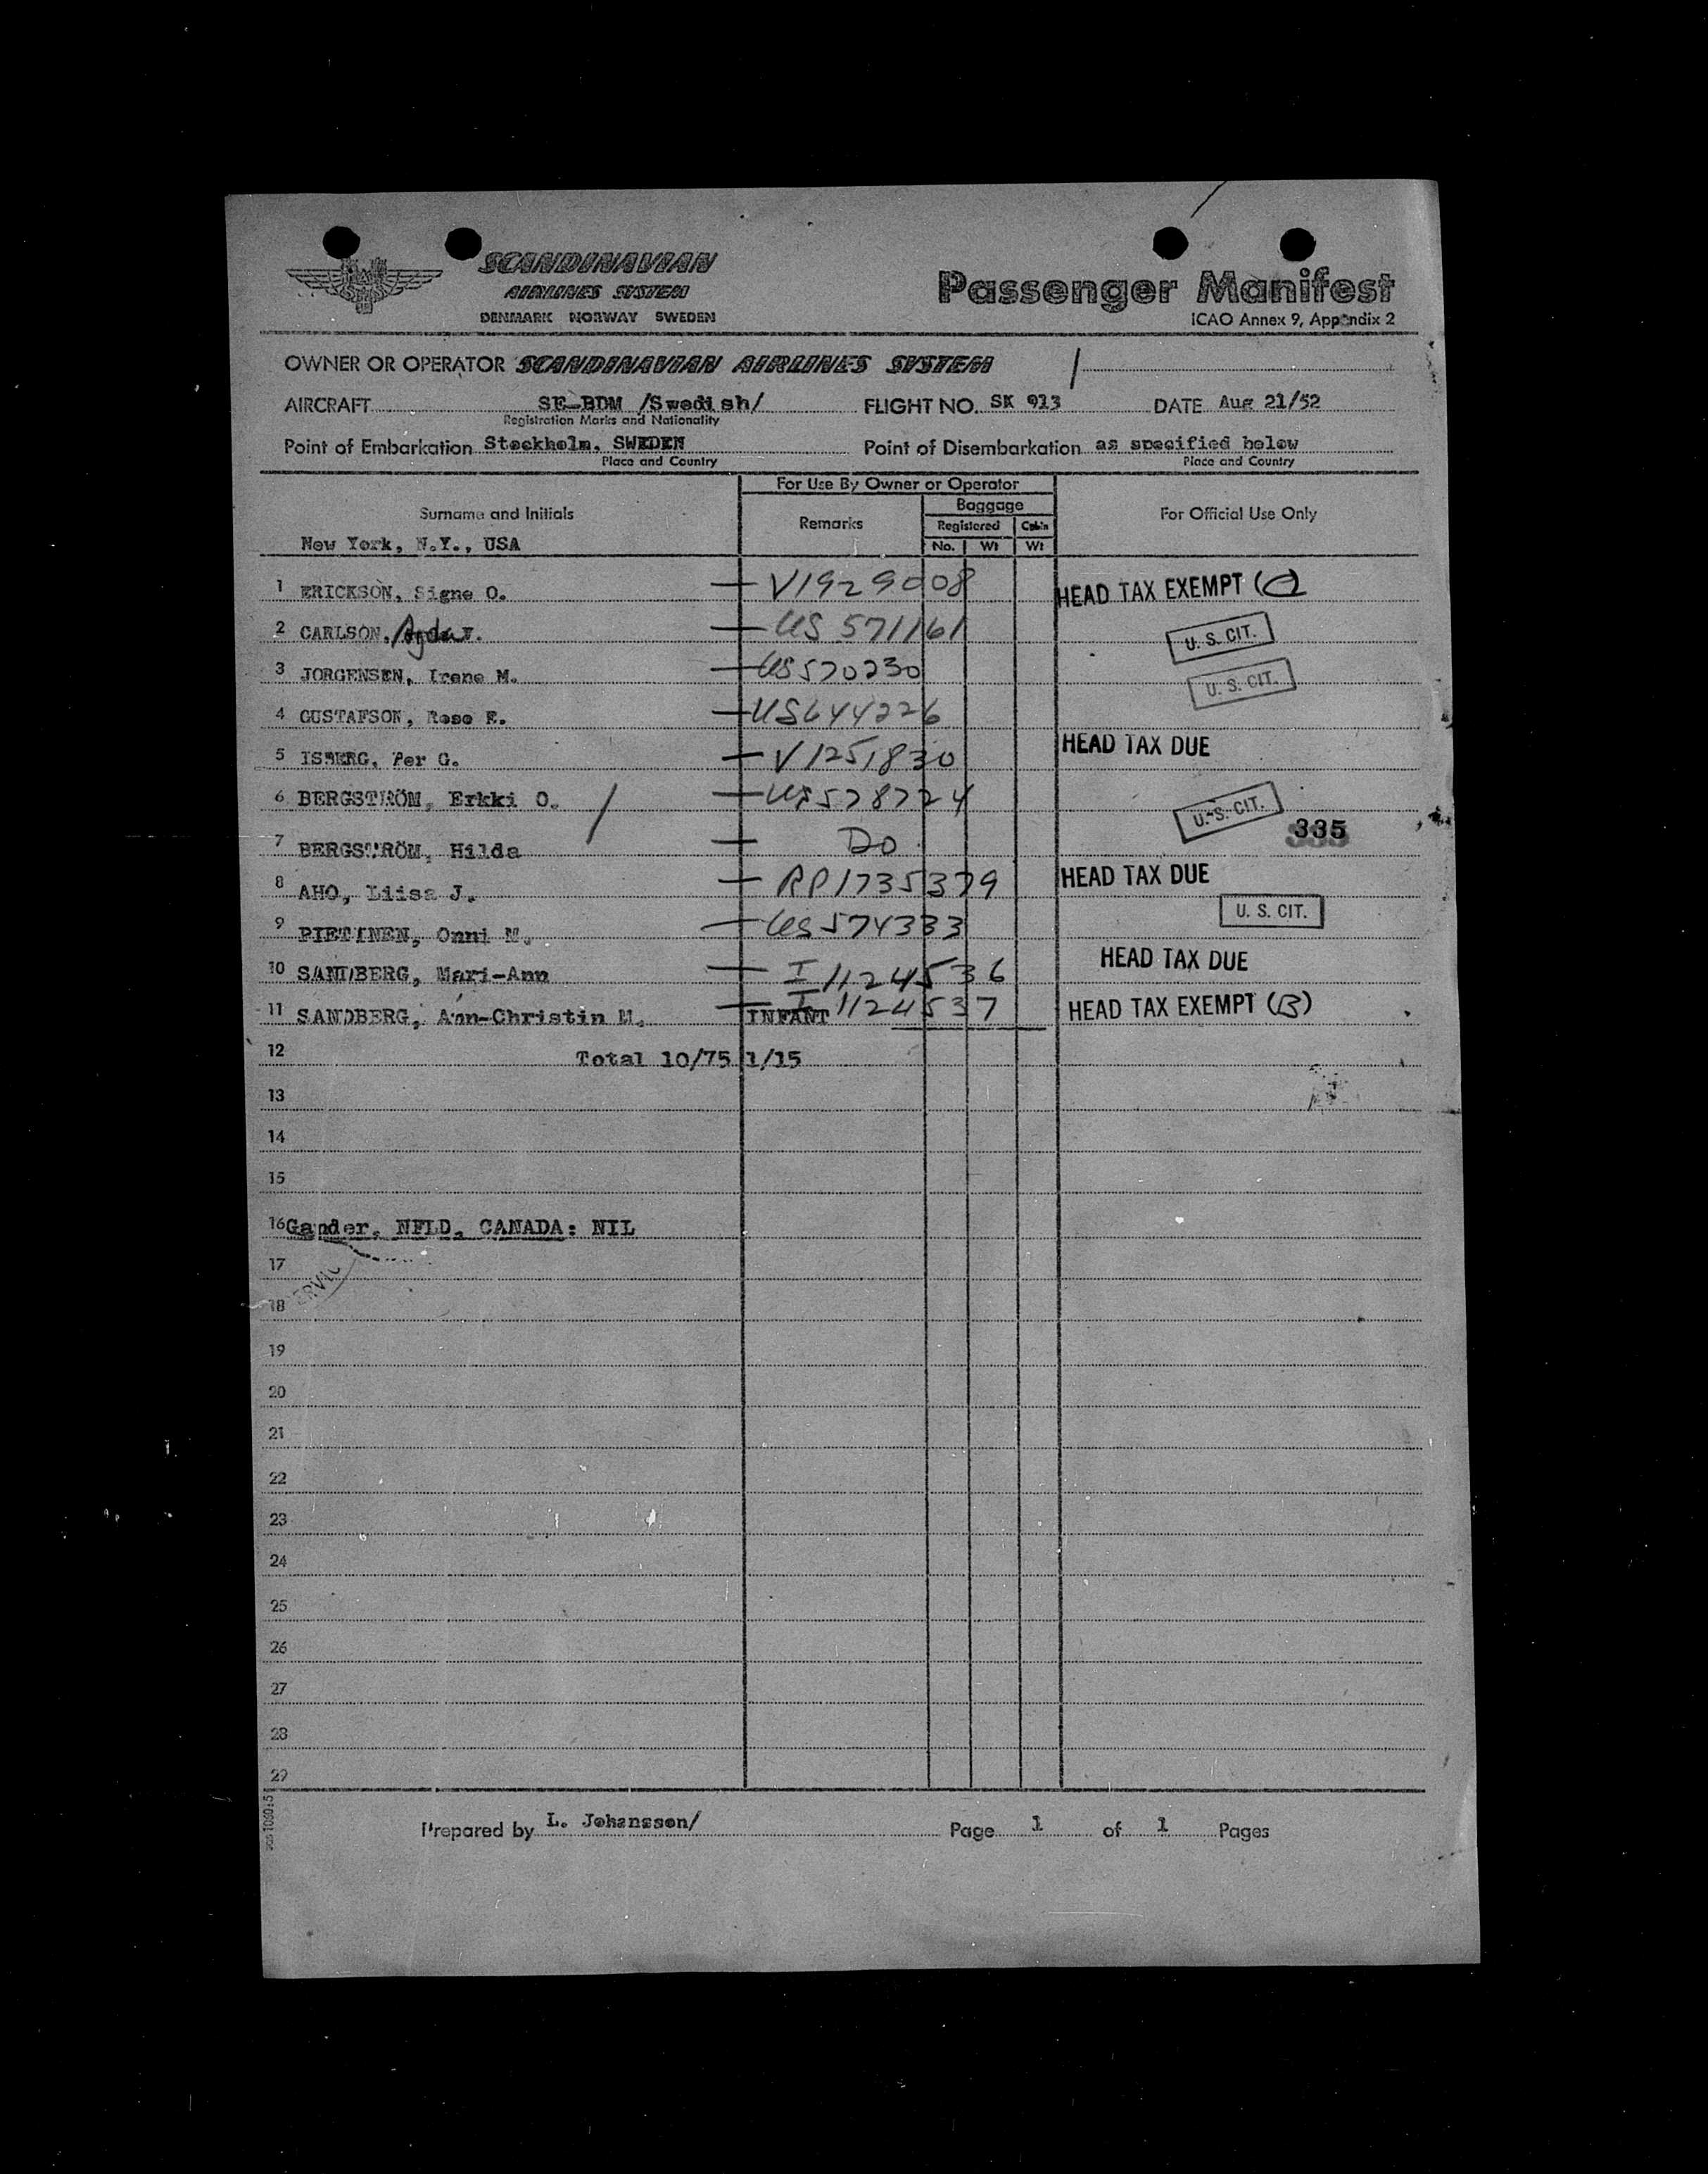 SCANDINAVIAN
AIRLINES SYSTEM
DENMARK NORWAY SWEDEN
Passenger Manifest
ICAO Annex 9, Appendix 2
OWNER OR OPERATOR SCANDINAVIAN AIRLINES SYSTEM
AIRCRAFT SE-BDM /Swedish/ FLIGHT NO. SK 913 DATE Aug 21/52
Registration Marks and Nationality
Point of Embarkation Stockholm, SWEDEN Point of Disembarkation as specified below
Place and Country Place and Country
For Use By Owner or Operator
Surname and Initials Remarks Baggage For Official Use Only
Registered Cabin
New York, N.Y., USA No. Wt Wt
1 ERICKSON, Signe O. V1929008 HEAD TAX EXEMPT (C)
2 CARLSON, Agda US 571161 U. S. CIT.
3 JORGENSEN, Irene M. US570230 U. S. CIT.
4 GUSTAFSON, Rose E. US644226
5 ISBERG, Per G. V1251830 HEAD TAX DUE
6 BERGSTRÖM, Erkki O. / US578724 U. S. CIT.
335
7 BERGSTRÖM, Hilda Do
8 AHO, Liisa J. RP1735379 HEAD TAX DUE
9 PIETINEN, Onni M. US574333 U. S. CIT.
10 SANDBERG, Mari-Ann I1124536 HEAD TAX DUE
11 SANDBERG, Ann-Christin M. INFANT I1124537 HEAD TAX EXEMPT (B)
12 Total 10/75 1/15
13
14
15
16 Gander, NFLD, CANADA: NIL
17
18
19
20
21
22
23
24
25
26
27
28
29
Prepared by L. Johansson/ Page 1 of 1 Pages